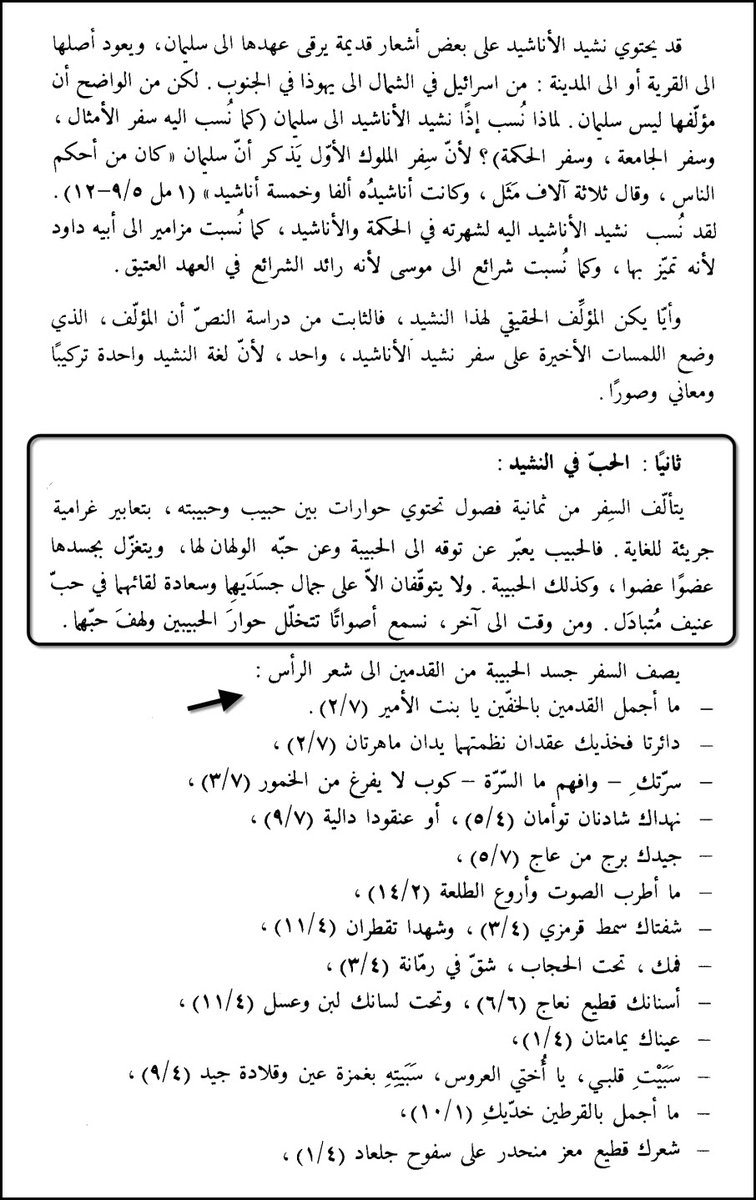 قد يحتوي نشيد الأناشيد على بعض أشعار قديمة يرقى عهدها الى سليمان، ويعود أصلها
الى القرية أو الى المدينة : من اسرائيل في الشمال الى يهوذا في الجنوب. لكن من الواضح أن
مؤلّفها ليس سليمان. لماذا نُسب إذًا نشيد الأناشيد الى سليمان (كما نُسب اليه سفر الأمثال،
وسفر الجامعة، وسفر الحكمة)؟ لأنّ سِفر الملوك الأوّل يَذكر أنّ سليمان «كان من أحكم
الناس، وقال ثلاثة آلاف مَثَل، وكانت أناشيدُه ألفا وخمسة أناشيد» (١ مل ٩/٥–١٢).
لقد نُسب نشيد الأناشيد اليه لشهرته في الحكمة والأناشيد، كما نُسبت مزامير الى أبيه داود
لأنه تميّز بها، وكما نُسبت شرائع الى موسى لأنه رائد الشرائع في العهد العتيق.
وأيًا يكن المؤلِّف الحقيقي لهذا النشيد، فالثابت من دراسة النصّ أن المؤلّف، الذي
وضع اللمسات الأخيرة على سفر نشيد الأناشيد، واحد، لأنّ لغة النشيد واحدة تركيبًا
ومعاني وصورًا.
ثانيًا : الحبّ في النشيد :
يتألّف السِفر من ثمانية فصول تحتوي حوارات بين حبيب وحبيبته، بتعابير غرامية
جريئة للغاية. فالحبيب يعبّر عن توقه الى الحبيبة وعن حبّه الولهان لها، ويتغزّل بجسدها
عضوًا عضوا، وكذلك الحبيبة. ولا يتوقّفان الاّ على جمال جسَدَيهما وسعادة لقائهما في حبّ
عنيف مُتبادَل. ومن وقت الى آخر، نسمع أصواتًا تتخلّل حوارَ الحبيبين ولهفَ حبّهما.
يصف السفر جسد الحبيبة من القدمين الى شعر الرأس :
– ما أجمل القدمين بالخفّين يا بنت الأمير (٢/٧).
– دائرتا فخذيك عقدان نظمتهما يدان ماهرتان (٢/٧)،
– سرّتكِ – وافهم ما السّرّة – كوب لا يفرغ من الخمور (٣/٧)،
– نهداك شادنان توأمان (٥/٤)، أو عنقودا دالية (٩/٧)،
– جيدك برج من عاج (٥/٧)،
– ما أطرب الصوت وأروع الطلعة (١٤/٢)،
– شفتاك سمط قرمزي (٣/٤)، وشهدا تقطران (١١/٤)،
– فمك، تحت الحجاب، شقّ في رمّانة (٣/٤)،
– أسنانك قطيع نعاج (٦/٦)، وتحت لسانك لبن وعسل (١١/٤)،
– عيناك يمامتان (١/٤)،
– سَبَيْتِ قلبي، يا أُختي العروس، سَبَيتِهِ بغمزة عين وقلادة جيد (٩/٤)،
– ما أجمل بالقرطين خدّيكِ (١٠/١)،
– شعرك قطيع معز منحدر على سفوح جلعاد (١/٤)،